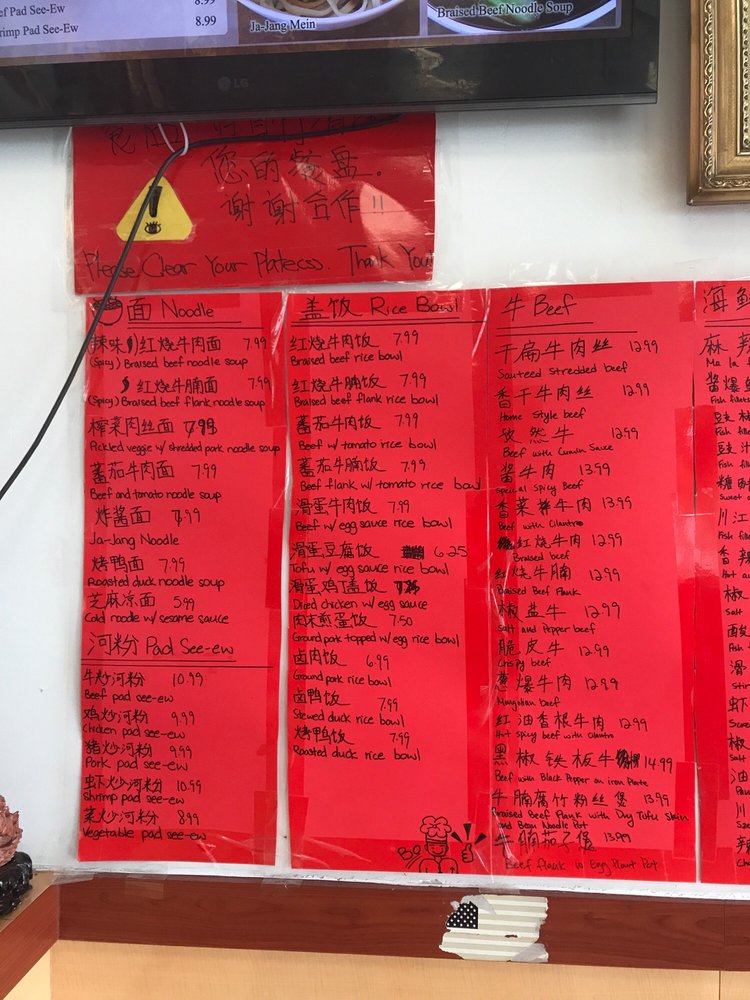 ef Pad See-Ew 8.99
rimp Pad See-Ew 8.99
Ja-Jang Mein
Braised Beef Noodle Soup
LG
您的餐盘.
谢谢合作!!
Please Clear Your Platecss. Thank You!
面 Noodle
辣味 红烧牛肉面 7.99
(Spicy) Braised beef noodle soup
红烧牛腩面 7.99
(Spicy) Braised beef flank noodle soup
榨菜肉丝面 7.99
Pickled veggie w/ shredded pork noodle soup
蕃茄牛肉面 7.99
Beef and tomato noodle soup
炸酱面 7.99
Ja-Jang Noodle
烤鸭面 7.99
Roasted duck noodle soup
芝麻凉面 5.99
Cold noodle w/ sesame sauce
河粉 Pad See-ew
牛炒河粉 10.99
Beef pad see-ew
鸡炒河粉 9.99
Chicken pad see-ew
猪炒河粉 9.99
Pork pad see-ew
虾炒河粉 10.99
Shrimp pad see-ew
菜炒河粉 8.99
Vegetable pad see-ew
盖饭 Rice Bowl
红烧牛肉饭 7.99
Braised beef rice bowl
红烧牛腩饭 7.99
Braised beef flank rice bowl
蕃茄牛肉饭 7.99
Beef w/ tomato rice bowl
蕃茄牛腩饭 7.99
Beef flank w/ tomato rice bowl
滑蛋牛肉饭 7.99
Beef w/ egg sauce rice bowl
滑蛋豆腐饭 6.25
Tofu w/ egg sauce rice bowl
滑蛋鸡丁盖饭
Dried chicken w/ egg sauce
肉末煎蛋饭 7.50
Ground pork topped w/ egg rice bowl
卤肉饭 6.99
Ground pork rice bowl
卤鸭饭 7.99
Stewed duck rice bowl
烤鸭饭 7.99
Roasted duck rice bowl
牛 Beef
干扁牛肉丝 12.99
Sauteed Stredded beef
香干牛肉丝 12.99
Home Style beef
孜然牛 12.99
Beef with Cumin Sauce
酱牛肉 13.99
Special Spicy Beef
香菜牛肉 13.99
Beef with Cilantro
红烧牛肉 12.99
Braised beef
红烧牛腩 12.99
Braised Beef Flank
椒盐牛 12.99
Salt and Pepper beef
脆皮牛 12.99
Crispy beef
葱爆牛肉 12.99
Mongolian beef
红油香根牛肉 12.99
Hot spicy beef with cilantro
黑椒铁板牛 14.99
Beef with Black Pepper on iron Plate
牛腩腐竹粉丝煲 13.99
Braised Beef Flank with Dry Tofu Skin
and Bean Noodle Pot
牛腩茄子煲 13.99
Beef flank w Egg Plant Pot
海鲜
麻辣
Ma la
酱爆
Fish fillet
Fish
豉汁
Fish fil
糖醋
Sweet
川江
Fish fil
香辣
Hot a
椒
Salt
酸
滑
虾
椒
Salt
油
川
辣